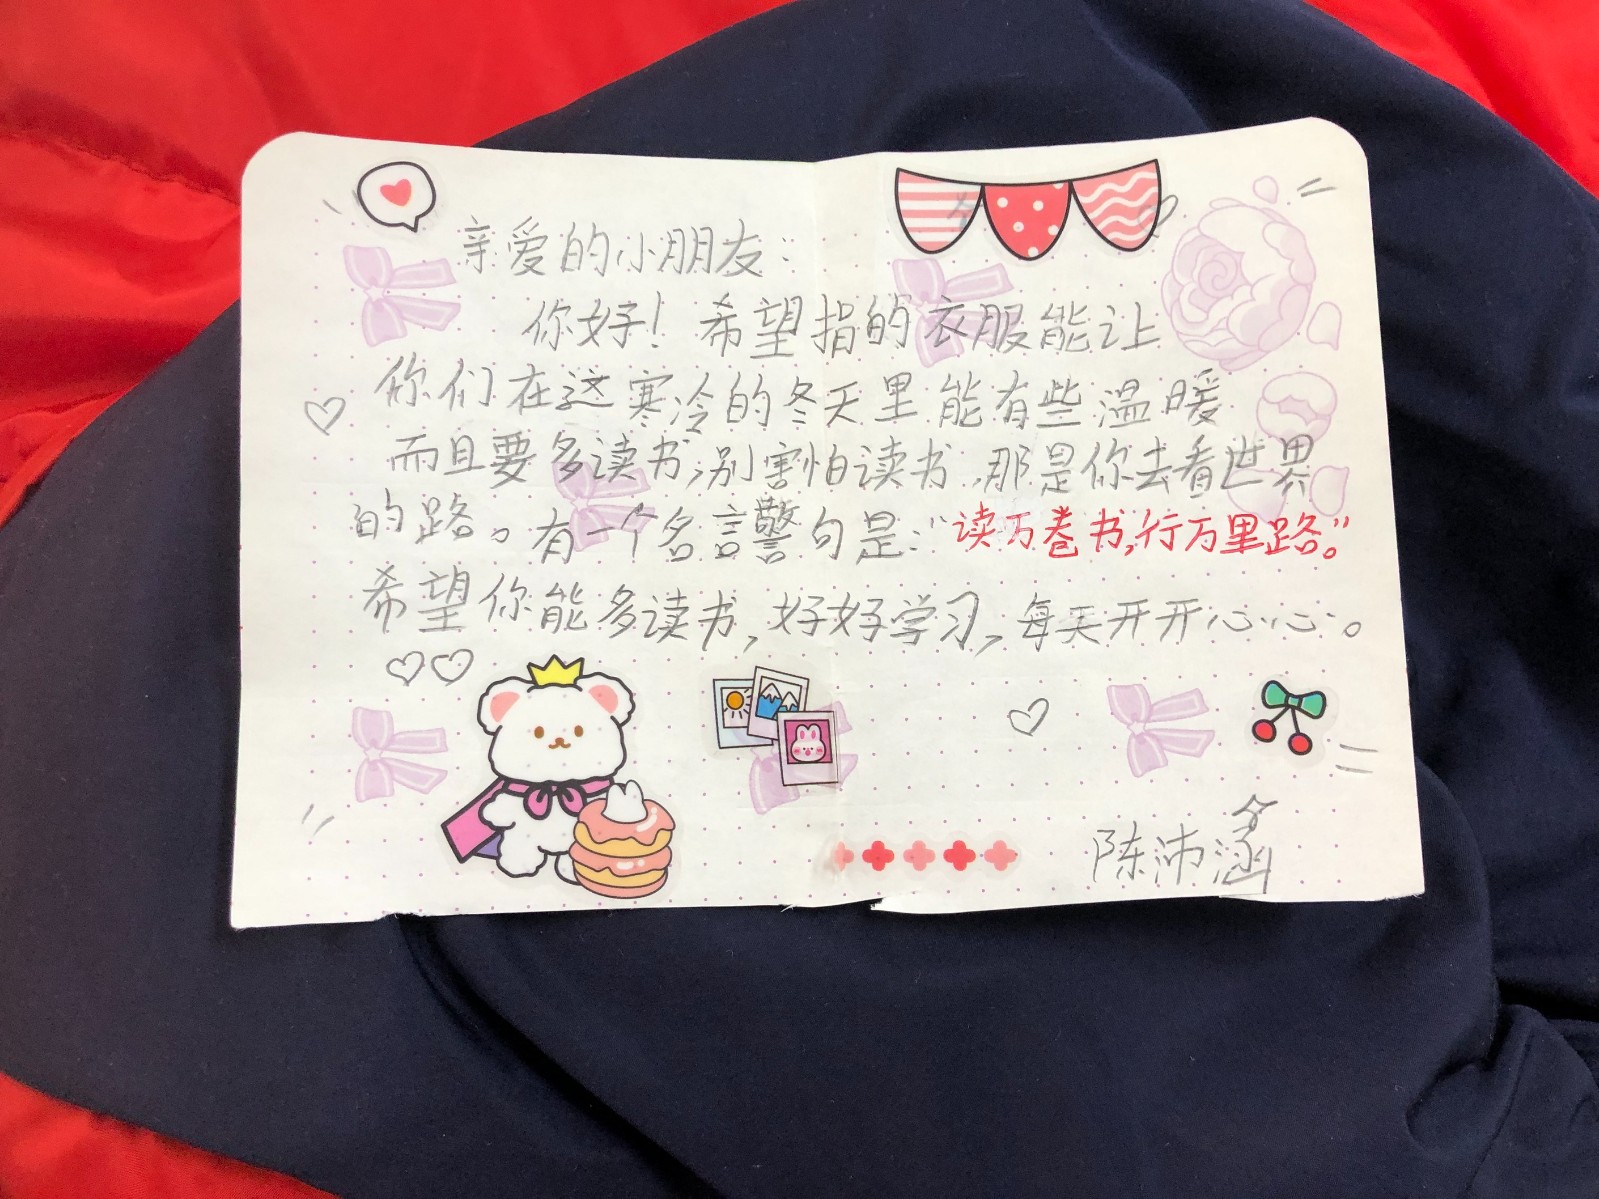 亲爱的小朋友:
你好!希望捐的衣服能让
你们在这寒冷的冬天里能有些温暖
而且要多读书,别害怕读书,那是你去看世界
的路。有一个名言警句是:“读万卷书,行万里路。”
希望你能多读书,好好学习,每天开开心心。
陈沛涵